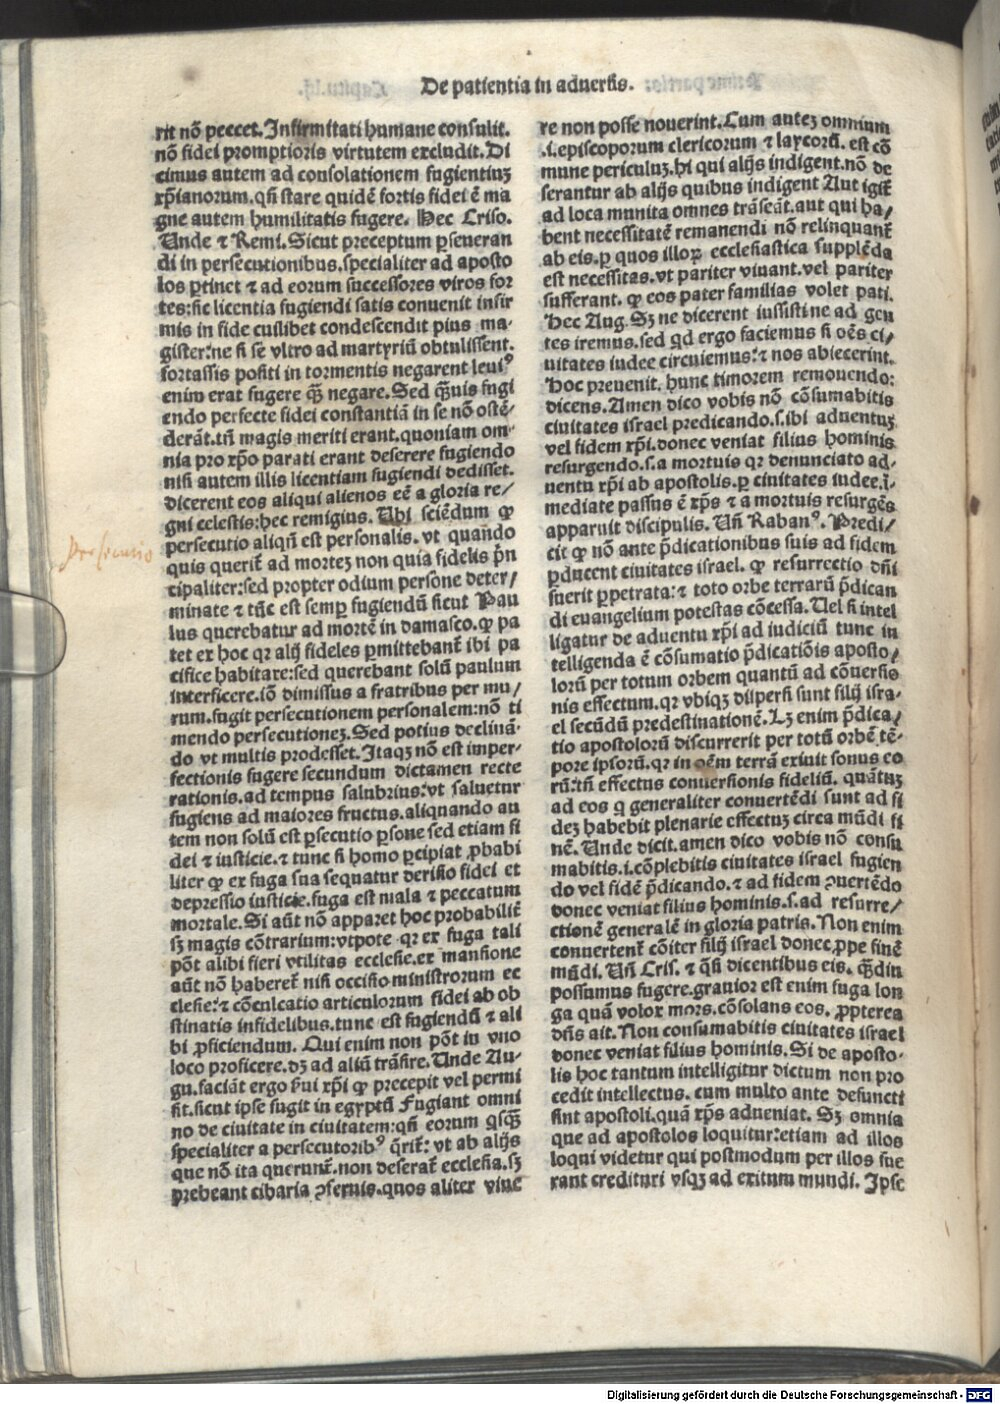 De patientia in aduersis.
rit nō peccet. Infirmitati humane consulit.
nō fidei promptioris virtutem excludit. Di
cimus autem ad consolationem fugientiuꝫ
xp̄ianorum. qn̄ stare quidē fortis fidei ē ma
gne autem humilitatis fugere. Hec Criso.
Unde ⁊ Remi. Sicut preceptum ꝑseueran
di in persecutionibus. specialiter ad aposto
los ꝑtinet ⁊ ad eorum successores viros for
tes: sic licentia fugiendi satis conuenit infir
mis in fide cuilibet condescendit pius ma-
gister: ne si se vltro ad martyriū obtulissent.
fortassis positi in tormentis negarent leuiꝰ
enim erat fugere qȝ̄ negare. Sed qȝ̄uis fugi
endo perfecte fidei constantiā in se nō ostē-
derāt. tn̄ magis meriti erant. quoniam om-
nia pro xp̄o parati erant deserere fugiendo
nisi autem illis licentiam fugiendi dedisset.
dicerent eos aliqui alienos eē a gloria re/
gni celestis: hec remigius. Ubi sciēdum ꝙ
persecutio aliqn̄ est personalis. vt quando
quis querit̄ ad morteꝫ non quia fidelis p̄n
cipaliter: sed propter odium persone deter/
minate ⁊ tūc est semꝑ fugiendū sicut Pau
lus querebatur ad mortē in damasco. ꝙ pa
tet ex hoc qꝛ alij fideles ꝑmittebant̄ ibi pa
cifice habitare: sed querebant solū paulum
interficere. iō dimissus a fratribus per mu/
rum. fugit persecutionem personalem: nō ti
mendo persecutioneꝫ. Sed potius declinā-
do vt multis prodesset. Itaqꝫ nō est imper-
fectionis fugere secundum dictamen recte
rationis. ad tempus salubrius: vt saluetur
fugiens ad maiores fructus. aliquando au
tem non solū est ꝑsecutio ꝑsone sed etiam fi
dei ⁊ iusticie. ⁊ tunc si homo ꝑcipiat ꝓbabi
liter ꝙ ex fuga sua sequatur derisio fidei et
depressio iusticie. fuga est mala ⁊ peccatum
mortale. Si aūt nō apparet hoc probabilit̄
sꝫ magis cōtrarium: vtpote qꝛ ex fuga tali
pōt alibi fieri vtilitas ecclesie. ex mansione
aūt nō haberet̄ nisi occisio ministrorum ec
clesie: ⁊ cōculcatio articulorum fidei ab ob
stinatis infidelibus. tunc est fugiendū ⁊ ali
bi ꝓficiendum. Qui enim non pōt in vno
loco proficere. dꝫ ad aliū trāsire. Unde Au-
gu. faciāt ergo ẜui xp̄i ꝙ precepit vel permi
sit. sicut ipse fugit in egyptū Fugiant omni
no de ciuitate in ciuitatem: qn̄ eorum qisqȝ̄
specialiter a persecutoribꝰ q̄rit̄: vt ab alijs
que nō ita querunt̄. non deserat̄ ecclesia. sꝫ
prebeant cibaria ꝯseruis. quos aliter viue
re non posse nouerint. Cum auteꝫ omnium
.i. episcoporum clericorum ⁊ laycorū. est cō
mune periculuꝫ. hi qui alijs indigent. nō de
serantur ab alijs quibus indigent Aut igit̄
ad loca munita omnes trāseāt. aut qui ha/
bent necessitatē remanendi nō relinquant̄
ab eis. ꝑ quos illoꝝ ecclesiastica supplēda
est necessitas. vt pariter viuant. vel pariter
sufferant. ꝙ eos pater familias volet pati.
Hec Aug. Sꝫ ne dicerent iussistine ad gen
tes iremus. sed qd ergo faciemus si oēs ci/
uitates iudee circuiemus: ⁊ nos abiecerint.
Hoc preuenit. hunc timorem remouendo:
dicens. Amen dico vobis nō cōsumabitis
ciuitates israel predicando. s. ibi aduentuꝫ
vel fidem xp̄i. donec veniat filius hominis
resurgendo. s. a mortuis qꝛ denunciato ad-
uentu xp̄i ab apostolis. ꝑ ciuitates iudee. ī-
mediate passus ē xp̄s ⁊ a mortuis resurgēs
apparuit discipulis. Un̄ Rabanꝰ. Predi/
cit ꝙ nō ante p̄dicationibus suis ad fidem
ꝑducent ciuitates israel. ꝙ resurrectio dn̄i
fuerit ꝑpetrata: ⁊ toto orbe terrarū p̄dican
di euangelium potestas cōcessa. Uel si intel
ligatur de aduentu xp̄i ad iudiciū tunc in
telligenda ē cōsumatio p̄dicatiōis aposto/
lorū per totum orbem quantū ad cōuersio
nis effectum. qꝛ vbiqꝫ dispersi sunt filij isra-
el secūdū predestinationē. Lꝫ enim p̄dica/
tio apostolorū discurrerit per totū orbē tē-
pore ipsorū. qꝛ in oēm terrā exiuit sonus eo
rū: tn̄ effectus conuersionis fideliū. quātuꝫ
ad eos q generaliter conuertēdi sunt ad fi
deꝫ habebit plenarie effectuꝫ circa mūdi fi
nē. Unde dicit. amen dico vobis nō consu
mabitis. i. cōplebitis ciuitates israel fugien
do vel fidē p̄dicando. ⁊ ad fidem ꝯuertēdo
donec veniat filius hominis. s. ad resurre/
ctionē generalē in gloria patris. Non enim
conuertent̄ cōiter filij israel donec ꝓpe finē
mūdi. Un̄ Cris. ⁊ q̄si dicentibus eis. qȝ̄diu
possumus fugere. grauior est enim fuga lon
ga quā velox mors. cōsolans eos. ꝓpterea
dn̄s ait. Non consumabitis ciuitates israel
donec veniat filius hominis. Si de aposto-
lis hoc tantum intelligitur dictum non pro
cedit intellectus. cum multo ante defuncti
sint apostoli. quā xp̄s adueniat. Sꝫ omnia
que ad apostolos loquitur: etiam ad illos
loqui videtur qui postmodum per illos fue
rant credituri vsqꝫ ad exitum mundi. Ipse
persecutio
Digitalisierung gefördert durch die Deutsche Forschungsgemeinschaft - DFG